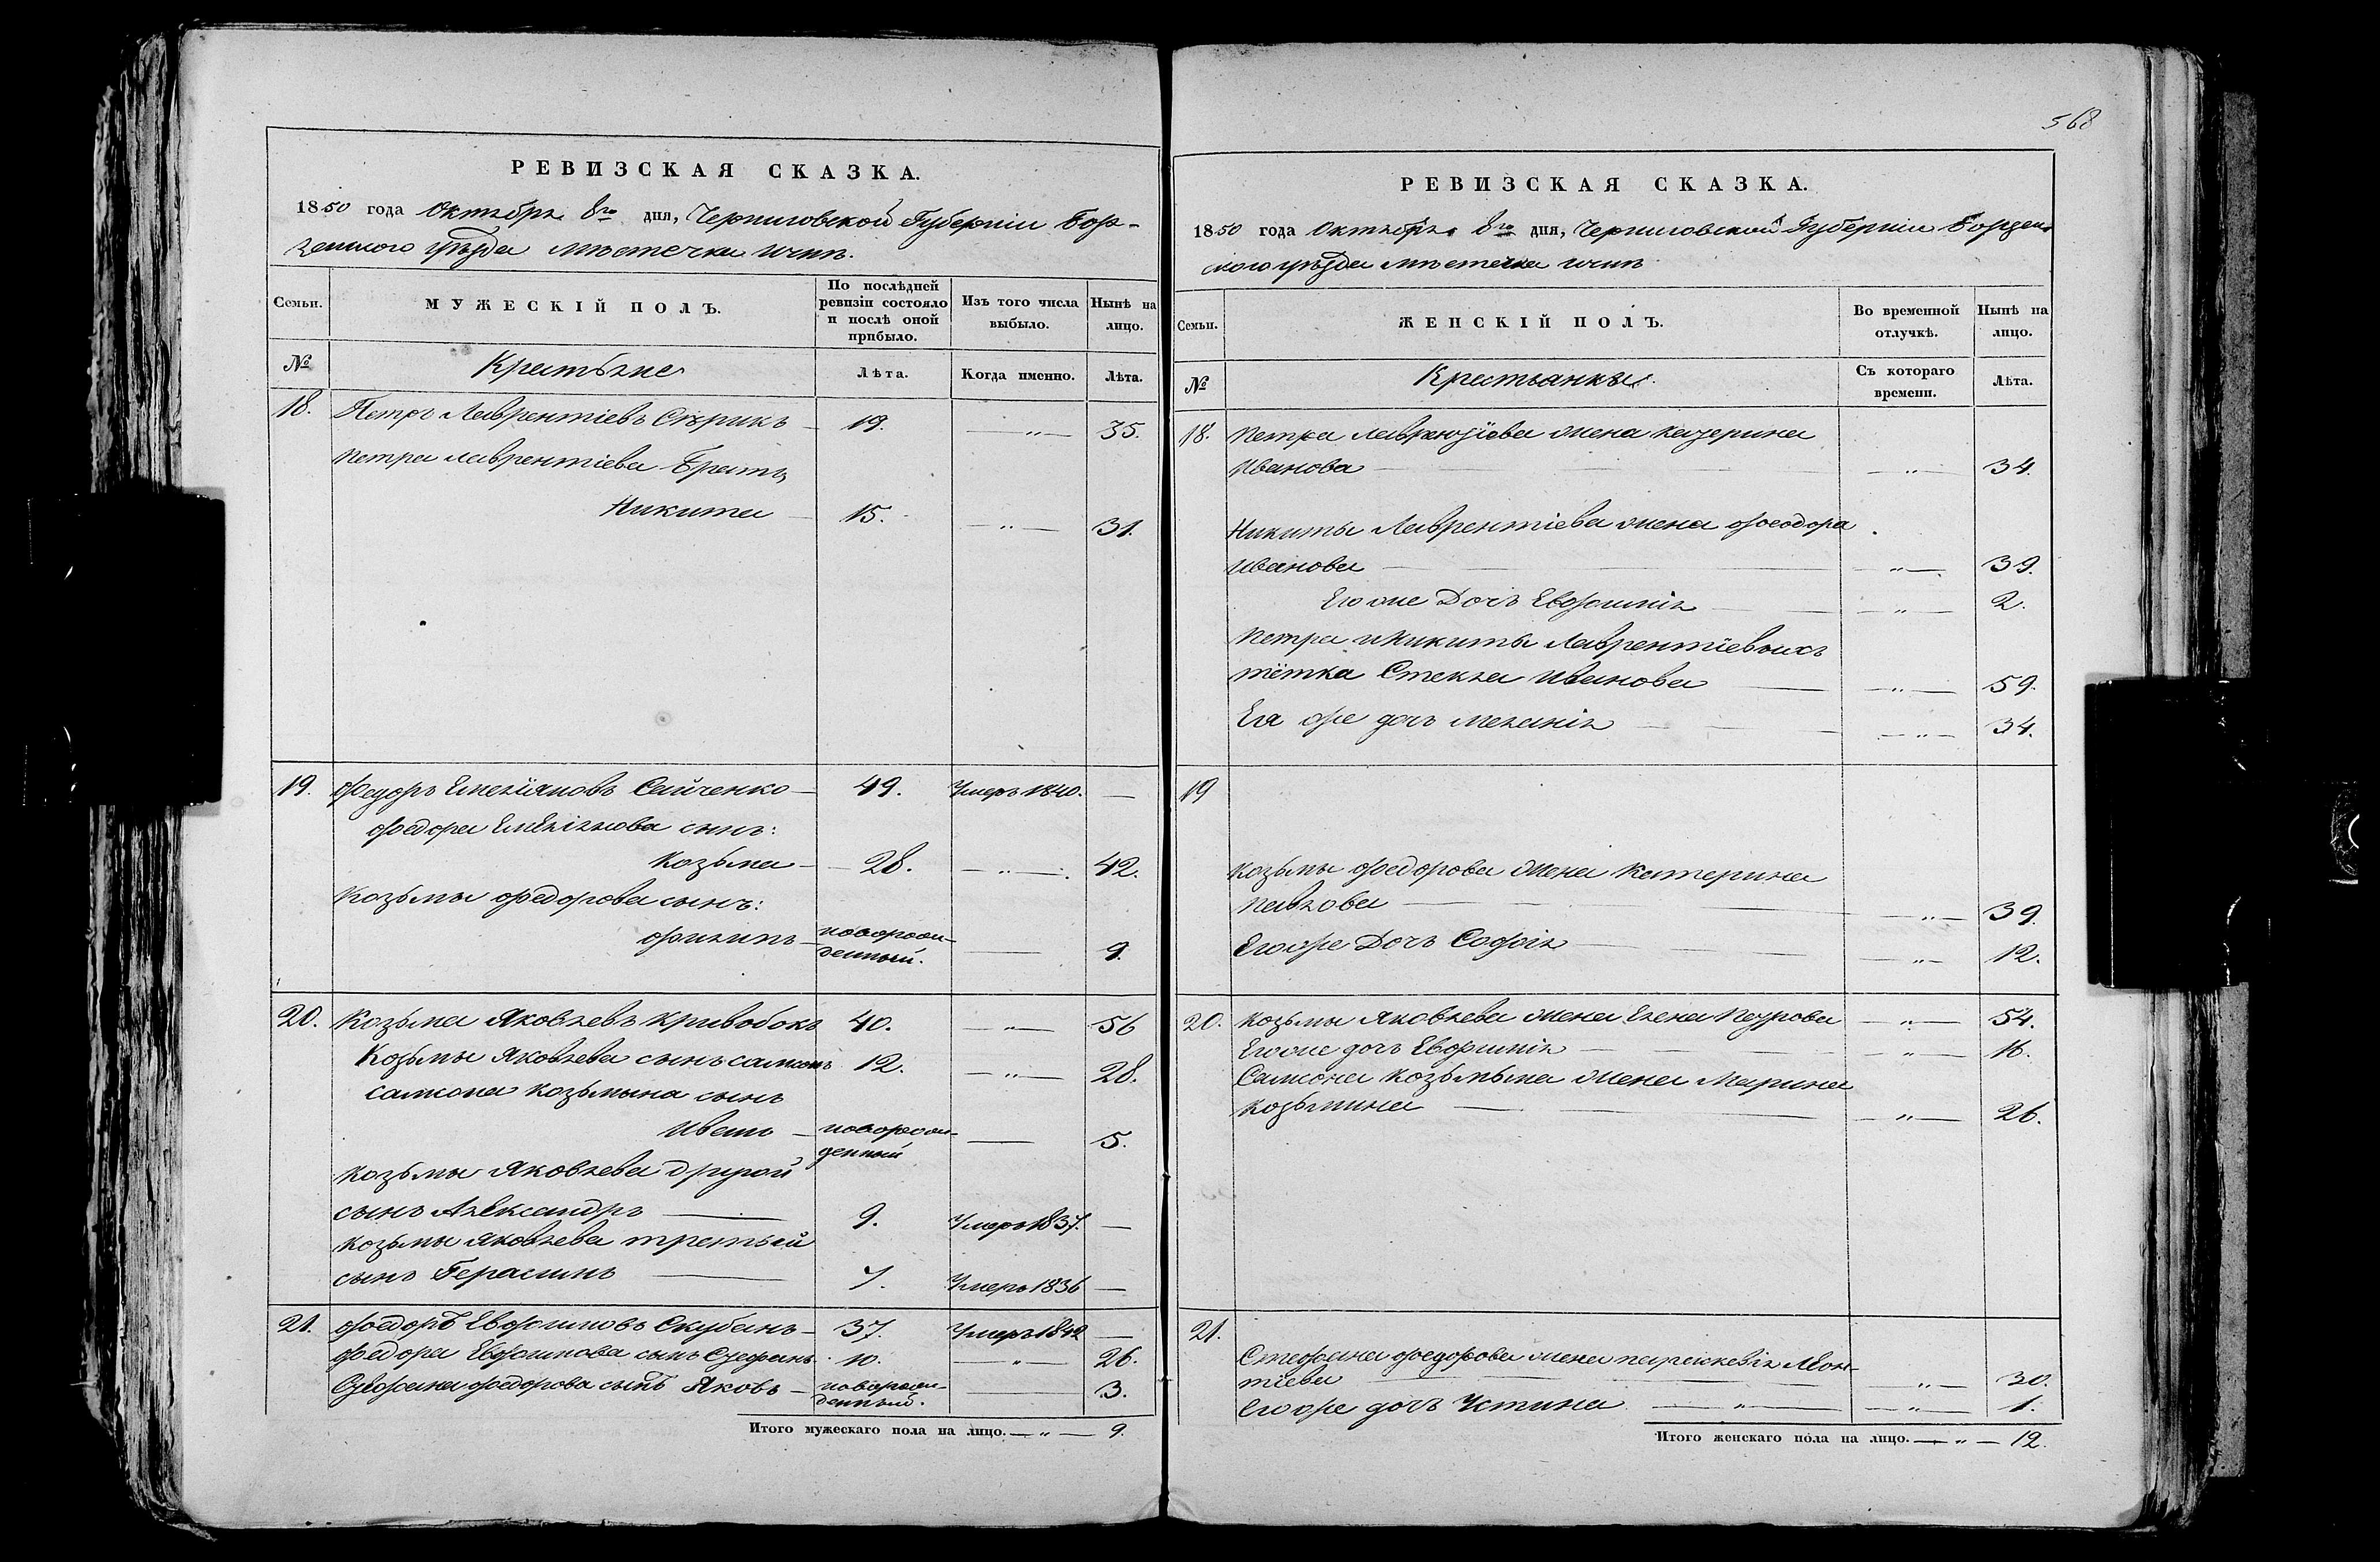 РЕВИЗСКАЯ СКАЗКА.
1850 года Октября 8го дня, Черниговской Губернии Бор-
зенского уѣзда мѣстечка Ични.
Семьи.
МУЖЕСКІЙ ПОЛЪ.
По послѣдней
ревизіи состояло
и послѣ оной
прибыло.
Изъ того числа
выбыло.
Нынѣ на
лицо.
№
Крестьяне
Лѣта.
Когда именно.
Лѣта.
18. Петръ Лаврентіевъ Сѣрикъ — 19. — „ — 35.
Петра Лаврентіева Братъ
Никита — 15. — „ — 31.
19. Федоръ Емельяновъ Сайченко — 49. Умеръ 1840. —
Федора Емельянова сынъ:
Козьма — 28. — „ — 42.
Козьмы Федорова сынъ:
Филипъ — новорож-
денный. — 9.
20. Козьма Яковлевъ Кривобокъ 40. — „ — 56
Козьмы Яковлева сынъ Самсонъ 12. — „ — 28.
Самсона Козьмина сынъ
Иванъ — новорож-
денный — 5.
Козьмы Яковлева другой
сынъ Александръ — 9. Умеръ 1837. —
Козьмы Яковлева третьей
сынъ Герасимъ — 7. Умеръ 1836 —
21. Федоръ Евфимовъ Скубанъ — 37. Умеръ 1842 —
Федора Евфимова сынъ Стефанъ 10. — „ — 26.
Стефана Федорова сынъ Яковъ — новорож-
денный. — 3.
Итого мужескаго пола на лицо. — „ — 9.
568
РЕВИЗСКАЯ СКАЗКА.
1850 года Октября 8го дня, Черниговской Губерніи Борзен-
ского уѣзда мѣстечка Ични
Семьи.
ЖЕНСКІЙ ПОЛЪ.
Во временной
отлучкѣ.
Нынѣ на
лицо.
№
Крестьянки.
Съ котораго
времени.
Лѣта.
18. Петра Лаврентіева жена Катерина
Иванова — „ — 34.
Никиты Лаврентіева жена Феодора
Иванова — „ — 39.
Его же Дочь Евфимія — „ — 2.
Петра и Никиты Лаврентіевыхъ
тётка Стекла Иванова — „ — 59.
Ея же дочь Меланія — „ — 34.
19
Козьмы Федорова жена Катерина
Павлова — „ — 39.
Его же Дочь Софія — „ — 12.
20. Козьмы Яковлева жена Елена Петрова — „ — 54.
Его же дочь Евфимія — „ — 16.
Самсона Козьмына жена Марина
Козьмина — „ — 26.
21.
Стефана Федорова жена Параскевія Леон-
тіева — „ — 30.
Его же дочь Устина — „ — „ — 1.
Итого женскаго пола на лицо. — „ — 12.